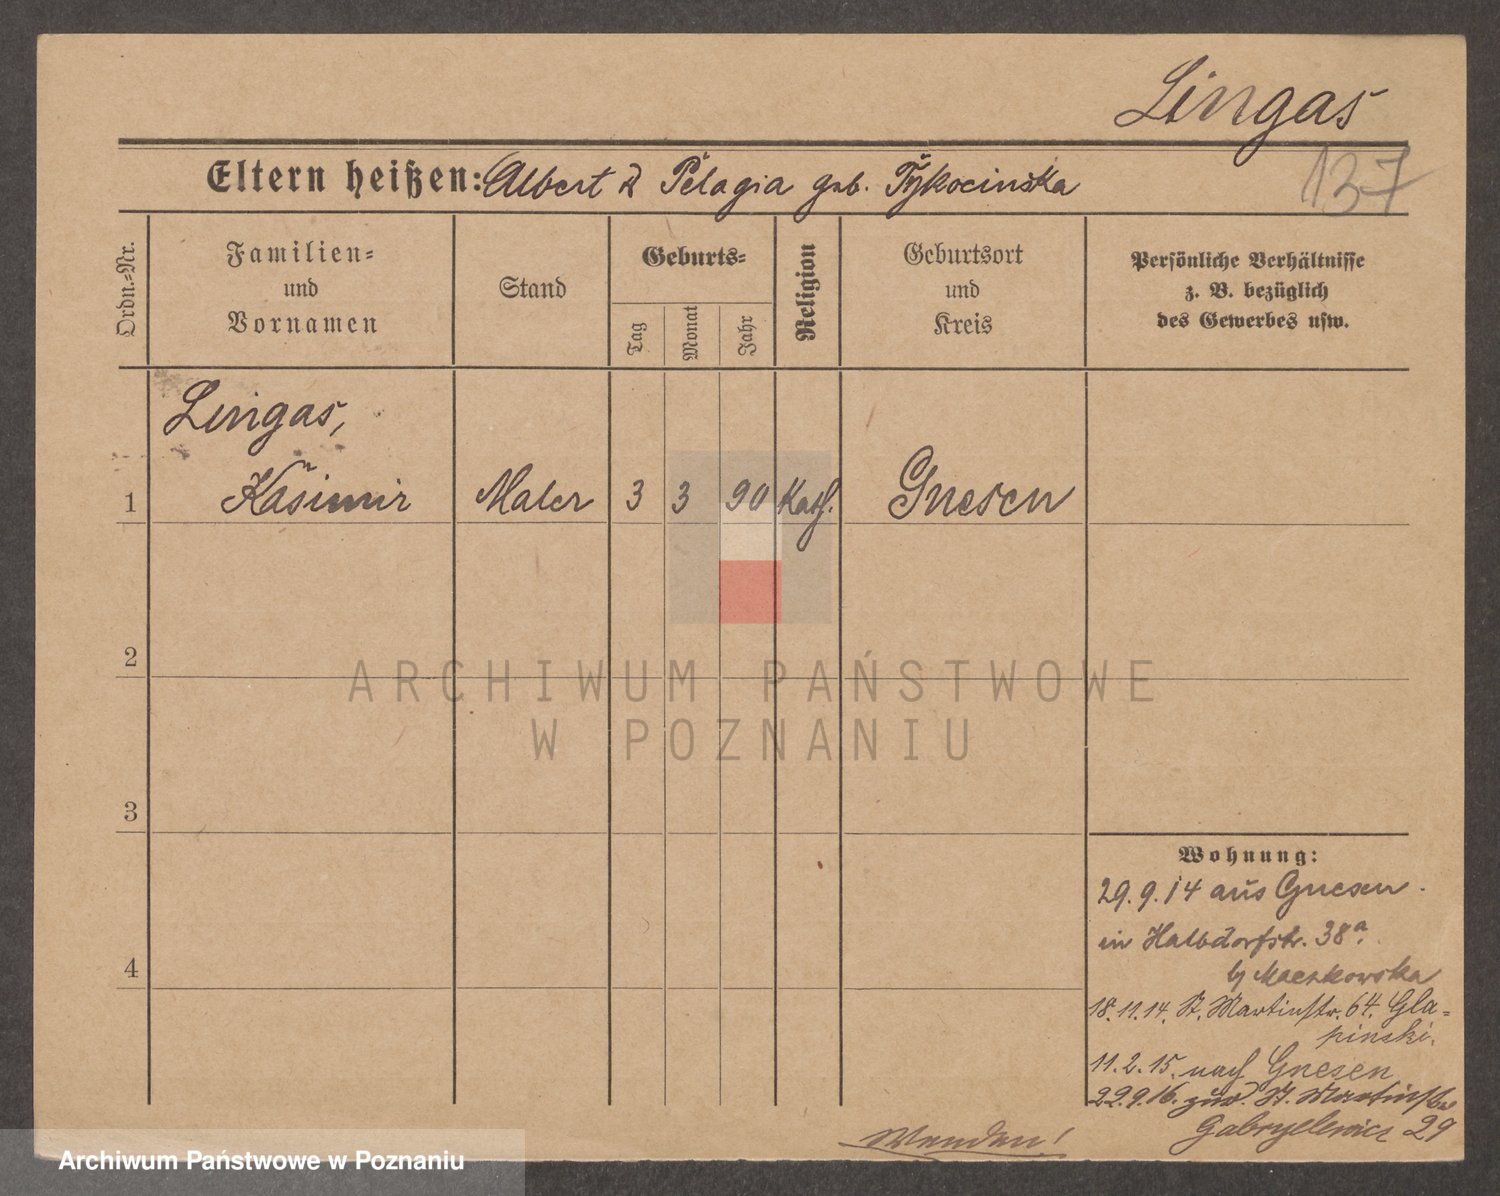 Lingas
137
Eltern heißen: Albert & Pelagia geb. Tykocinska
Ordn.-Nr.
Familien-
und
Vornamen
Stand
Geburts-
Tag
Monat
Jahr
Religion
Geburtsort
und
Kreis
Persönliche Verhältnisse
z. B. bezüglich
des Gewerbes usw.
Lingas,
1 Kasimir Maler 3 3 90 Kath. Gnesen
2
3
4
Wohnung:
29.9.14 aus Gnesen.
in Halbdorfstr. 38a.
by Maczkowska
18.11.14. St. Martinstr. 64. Gla-
pinski.
11.2.15. nach Gnesen
22.9.16. zur. St. Martinstr
Gabryelewicz 29
Wenden!
ARCHIWUM PAŃSTWOWE
W POZNANIU
Archiwum Państwowe w Poznaniu